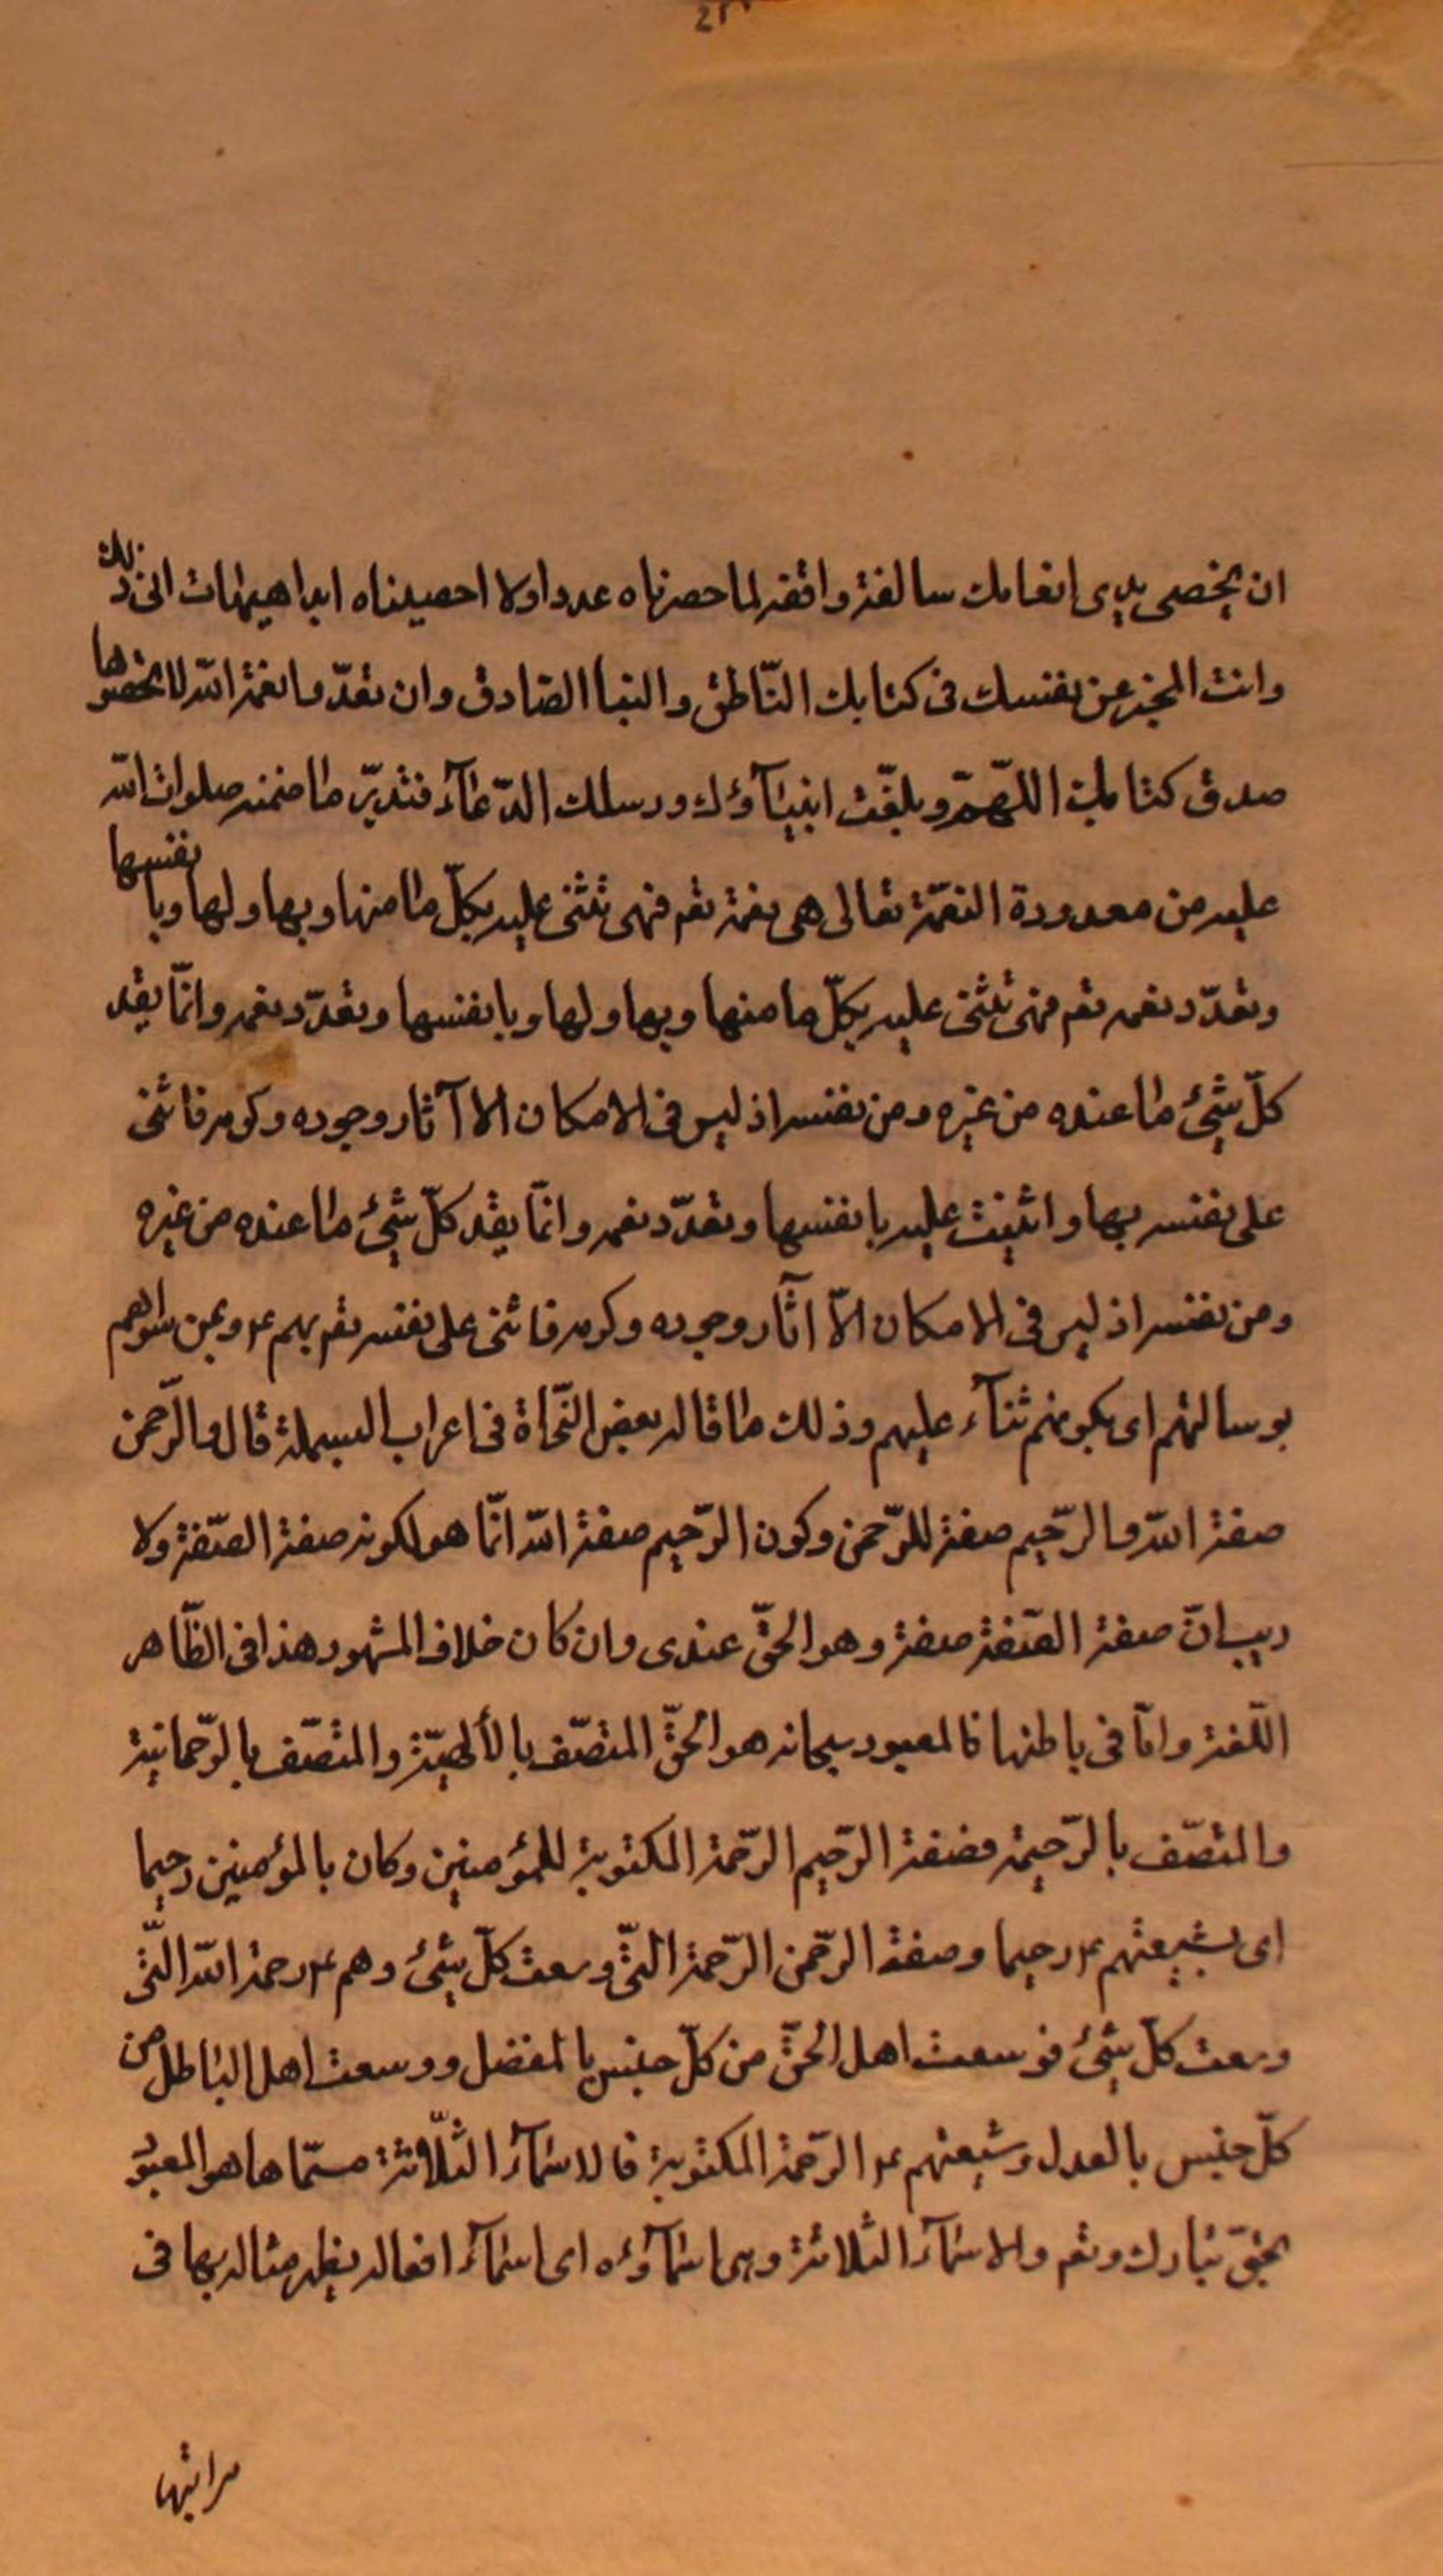 ان يحصى مدى انعامك سالفة وانفة لما حصرناه عددا ولا احصيناه ابدا هيهات انى ذلك
وانت المخبر عن نفسك فى كتابك الناطق والنبا الصادق وان تعدّوا نعمة الله لا تحصوها
صدق كتابك اللهمّ وبلّغت انبيآؤك ورسلك الدّعآء فتدبّر ما ضمنه صلوات الله
عليه من معدودة النعمّة تعالى هى نعمة تعم فهى تثنى عليه بكلّ ما منها وبها ولها وبانفسها
وتعدّد نعمه تعم فهى تثنى عليه بكلّ ما منها وبها ولها وبانفسها وتعدّد نعمه وانّما يعد
كلّ شئ ما عنده من غيره ومن نفسه اذ ليس فى الامكان الا آثار وجوده وكرمه فاثنى
على نفسه بها واثنيت عليه بانفسها وتعدّد نعمه وانّما يعد كلّ شئ ما عنده من غيره
ومن نفسه اذ ليس فى الامكان الاّ آثار وجوده وكرمه فاثنى على نفسه تعم بهم ع وبمن سواهم
بوسالتهم اى بكونهم ثنآء عليهم وذلك ما قاله بعض النّحاة فى اعراب البسملة قال والرّحمن
صفة الله والرّحيم صفة للرّحمن وكون الرّحيم صفة الله انّما هو لكونه صفة الصّفة ولا
ريب انّ صفة الصّفة صفة وهو الحقّ عندى وان كان خلاف المشهور هذا فى الظّاهر
اللّغة وامّا فى باطنها فالمعبود سبحانه هو الحقّ المتصّف بالألهيّة والمتصّف بالرّحمانيّة
والمتصّف بالرّحيمة فصفة الرّحيم الرّحمة المكتوبة للمؤمنين وكان بالمؤمنين رحيما
اى بشيعتهم ع رحيما وصفة الرّحمن الرّحمة الّتى وسعت كلّ شئ وهم ع رحمة الله الّتى
وسعت كلّ شئ فوسعت اهل الحقّ من كلّ جنس بالفضل ووسعت اهل الباطل من
كلّ جنس بالعدل وشيعتهم ع الرّحمة المكتوبة فالاسمآء الثّلاثة مسمّاها هو المعبود
بحقّ تبارك وتعم والاسمآء الثلاثة وهى اسمآؤه اى اسمآء افعاله يظهر مثاله بها فى
مراتبها